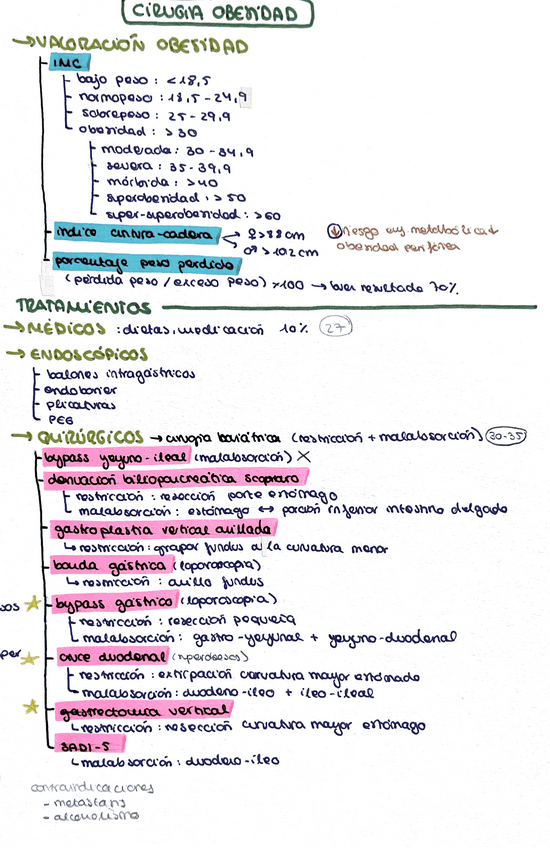 CIRUGÍA OBESIDAD
→VALORACIÓN OBESIDAD
IMC
bajo peso : <18,5
normopeso : 18,5 - 24,9
sobrepeso : 25 - 29,9
obesidad : >30
moderada : 30 - 34,9
severa : 35 - 39,9
mórbida : >40
superobesidad : > 50
super-superobesidad : >60
índice cintura-cadera → ♀ >88 cm
♂ >102 cm
↓ riesgo enf. metabólica
obesidad periférica
porcentaje peso perdido
(pérdida peso / exceso peso) ×100 → buen resultado 70%
TRATAMIENTOS
→ MÉDICOS : dietas, medicación 10% 27
→ ENDOSCÓPICOS
balones intragástricos
endobarrier
plicaturas
PEG
→ QUIRÚRGICOS → cirugía bariátrica (restricción + malabsorción) 30-35
bypass yeyuno-ileal (malabsorción) X
derivación biliopancreática scopinaro
restricción : resección parte estómago
malabsorción : estómago ↔ porción inferior intestino delgado
gastroplastia vertical anillada
↳ restricción : grapar fundus a la curvatura menor
banda gástrica (laparoscopia)
↳ restricción : anillo fundus
sos ☆ bypass gástrico (laparoscopia)
restricción : resección pequeña
malabsorción : gastro-yeyunal + yeyuno-duodenal
per ☆ cruce duodenal (superobesos)
restricción : extirpación curvatura mayor estómado
malabsorción : duodeno-íleo + íleo-ileal
☆ gastrectomía vertical
↳ restricción : resección curvatura mayor estómago
SADI-S
↳ malabsorción : duodeno-íleo
contraindicaciones
- metástasis
- alcoholismo